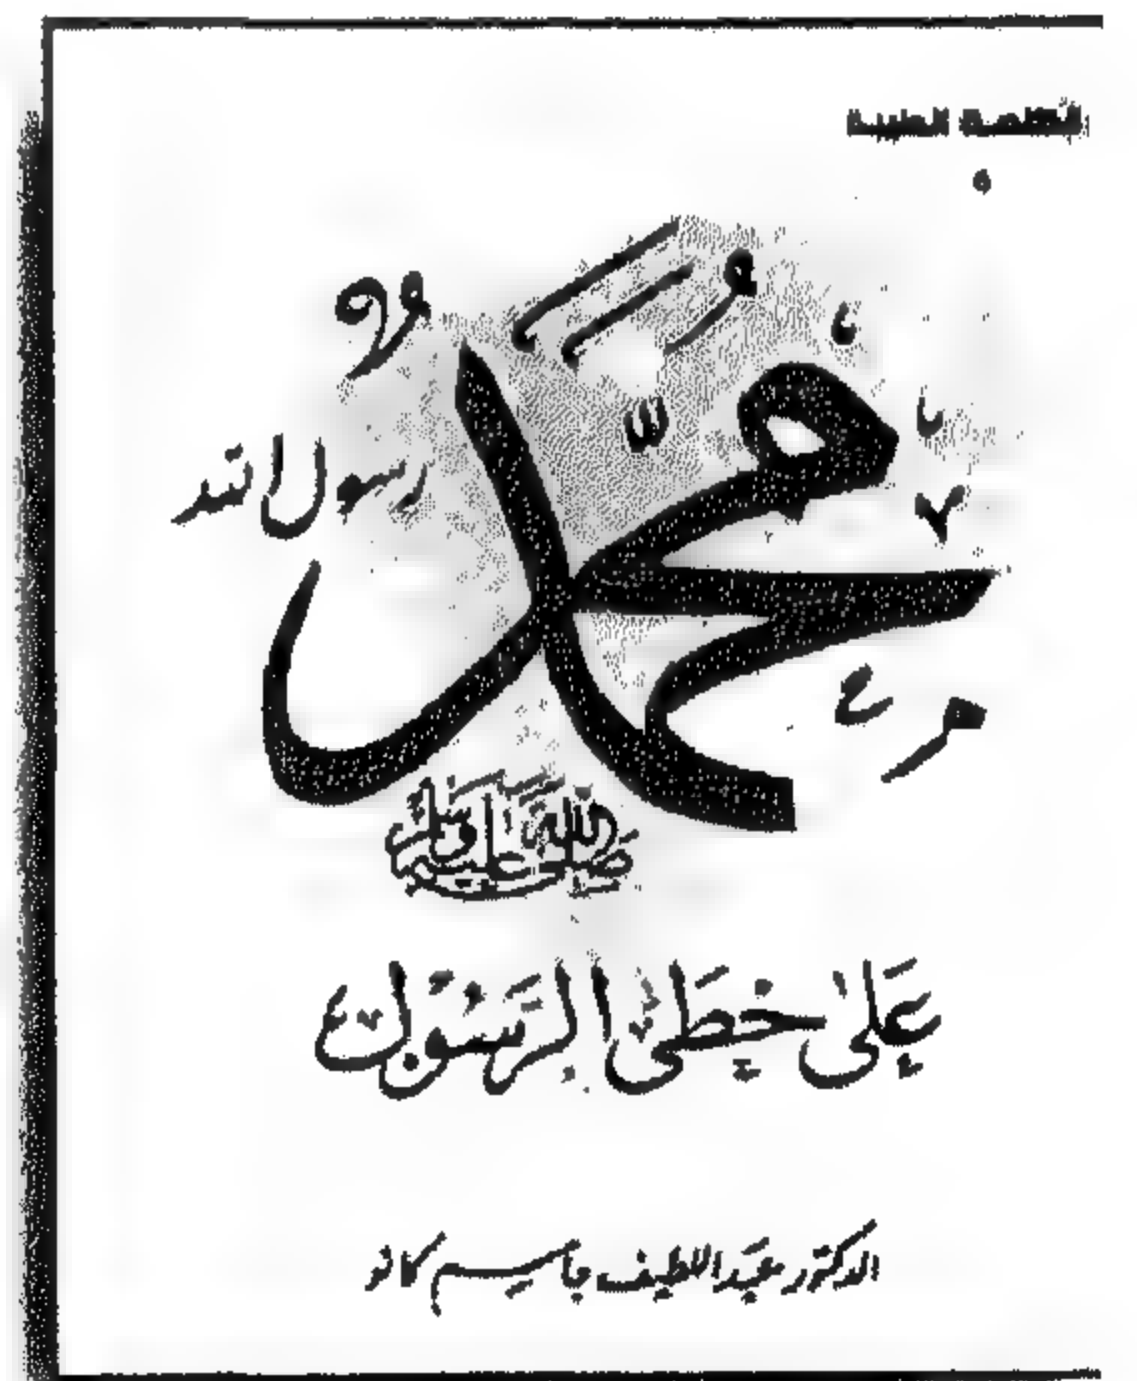 الكلمة الطيبة
٥
محمد
رسول الله
صلى الله عليه وسلم
عَلى خطى الرَّسُول
الدكتور عبد اللطيف جاسم كانو